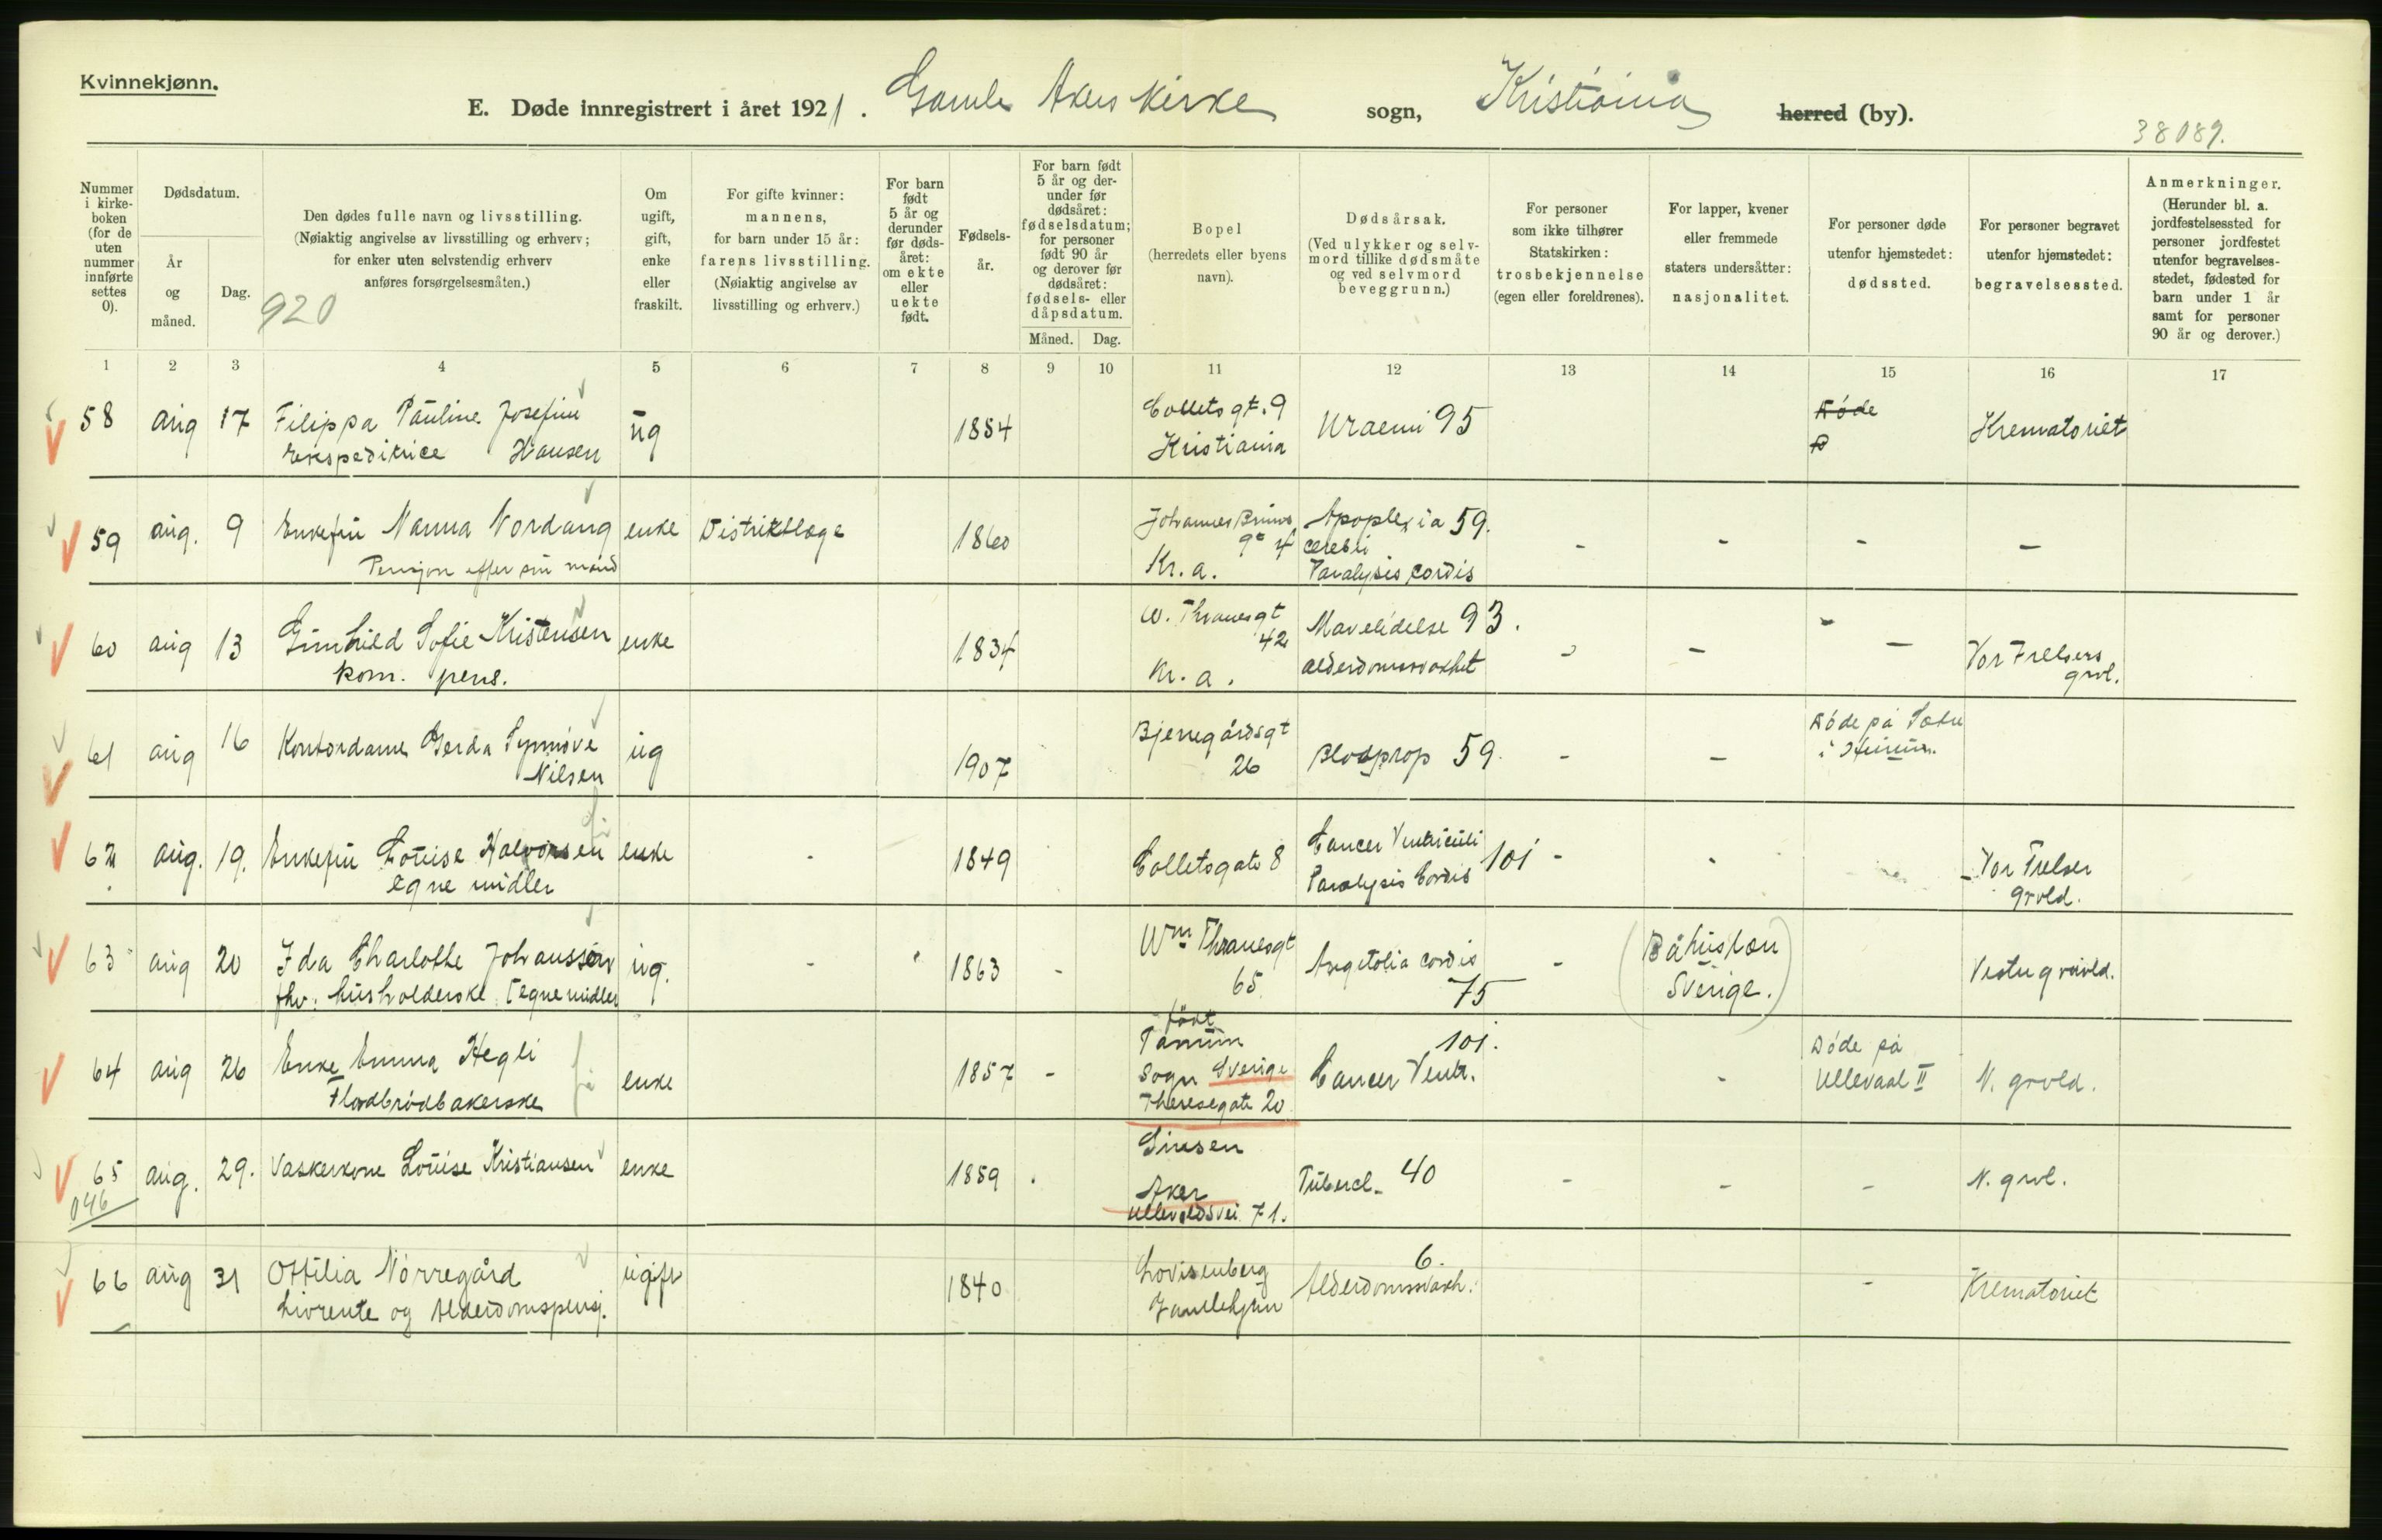 Kvinnekjønn.
E. Døde innregistrert i året 1921. Gamle Akers kirke sogn, Kristiania herred (by).
38089.
Nummer i kirke-boken (for de uten nummer innførte settes 0).
Dødsdatum.
År og måned.
Dag.
Den dødes fulle navn og livsstilling.
(Nøiaktig angivelse av livsstilling og erhverv;
for enker uten selvstendig erhverv
anføres forsørgelsesmåten.)
920
Om ugift, gift, enke eller fraskilt.
For gifte kvinner:
mannens,
for barn under 15 år:
farens livsstilling.
(Nøiaktig angivelse av
livsstilling og erhverv.)
For barn født 5 år og derunder før døds-året: om ekte eller uekte født.
Fødsels-år.
For barn født 5 år og der-under før dødsåret: fødselsdatum; for personer født 90 år og derover før dødsåret: fødsels- eller dåpsdatum.
Måned. Dag.
Bopel
(herredets eller byens
navn).
Dødsårsak.
(Ved ulykker og selv-
mord tillike dødsmåte
og ved selvmord
beveggrunn.)
For personer
som ikke tilhører
Statskirken:
trosbekjennelse
(egen eller foreldrenes).
For lapper, kvener
eller fremmede
staters undersåtter:
nasjonalitet.
For personer døde
utenfor hjemstedet:
dødssted.
For personer begravet
utenfor hjemstedet:
begravelsessted.
Anmerkninger.
(Herunder bl. a.
jordfestelsessted for
personer jordfestet
utenfor begravelses-
stedet, fødested for
barn under 1 år
samt for personer
90 år og derover.)
1 2 3 4 5 6 7 8 9 10 11 12 13 14 15 16 17
58 aug 17 Filippa Pauline Josefine
Ekspeditrice Hansen
ug 1854
Collets gt. 9
Kristiania
Uraemi 95
Døde
Krematoriet
59 aug. 9 Enkefru Nanna Nordang
Pensjon efter sin mand
enke Distriktlæge 1860
Johannes Bruns
gt 4
Kr. a.
Apoplexia 59.
cerebri
Paralysis cordis
- - - -
60 aug 13 Gunhild Sofie Kristensen
kom. pens.
enke 1834
W. Thranesgt
42
Kr. a.
Mavelidelse 93.
alderdomssvakhet
- - -
Vor Frelsers
grvl.
61 aug 16 Kontordame Gerda Synnøve
Nilsen
ug 1907
Bjerregårdsgt
26
Blodprop 59.
- -
Døde på Sæter
62 aug. 19. Enkefru Louise Halvorsen
egne midler
enke - 1849
Colletsgate 8
Cancer Ventriculi
Paralysis Cordis 101
- -
Vor Frelser
grvld.
63 aug 20 Ida Charlotte Johansson
fhv. husholderske egne midler
ug. - 1863 -
Wm Thranesgt
65
cordis
75
-
(Båhuslæn
Sverige.)
Vestre gravld.
64 aug 26 Enke Emma Hegli
Fladbrødbakerske
enke 1857 -
født
Tanum
Sogn Sverige
Theresegate 20
101.
Cancer Ventr.
-
Døde på
Ullevaal II
N. grvld.
65 aug. 29. Vaskekone Louise Kristiansen
046
enke 1859
Sinsen
Aker
Ullevoldsvei 71.
Tubercl. 40
- - -
N. grvl.
66 aug 31 Ottilia Nørregård
Livrente og Alderdomspensj.
ugift 1840
Lovisenberg
Gamlehjem
6.
Alderdomssvakh.
-
Krematoriet